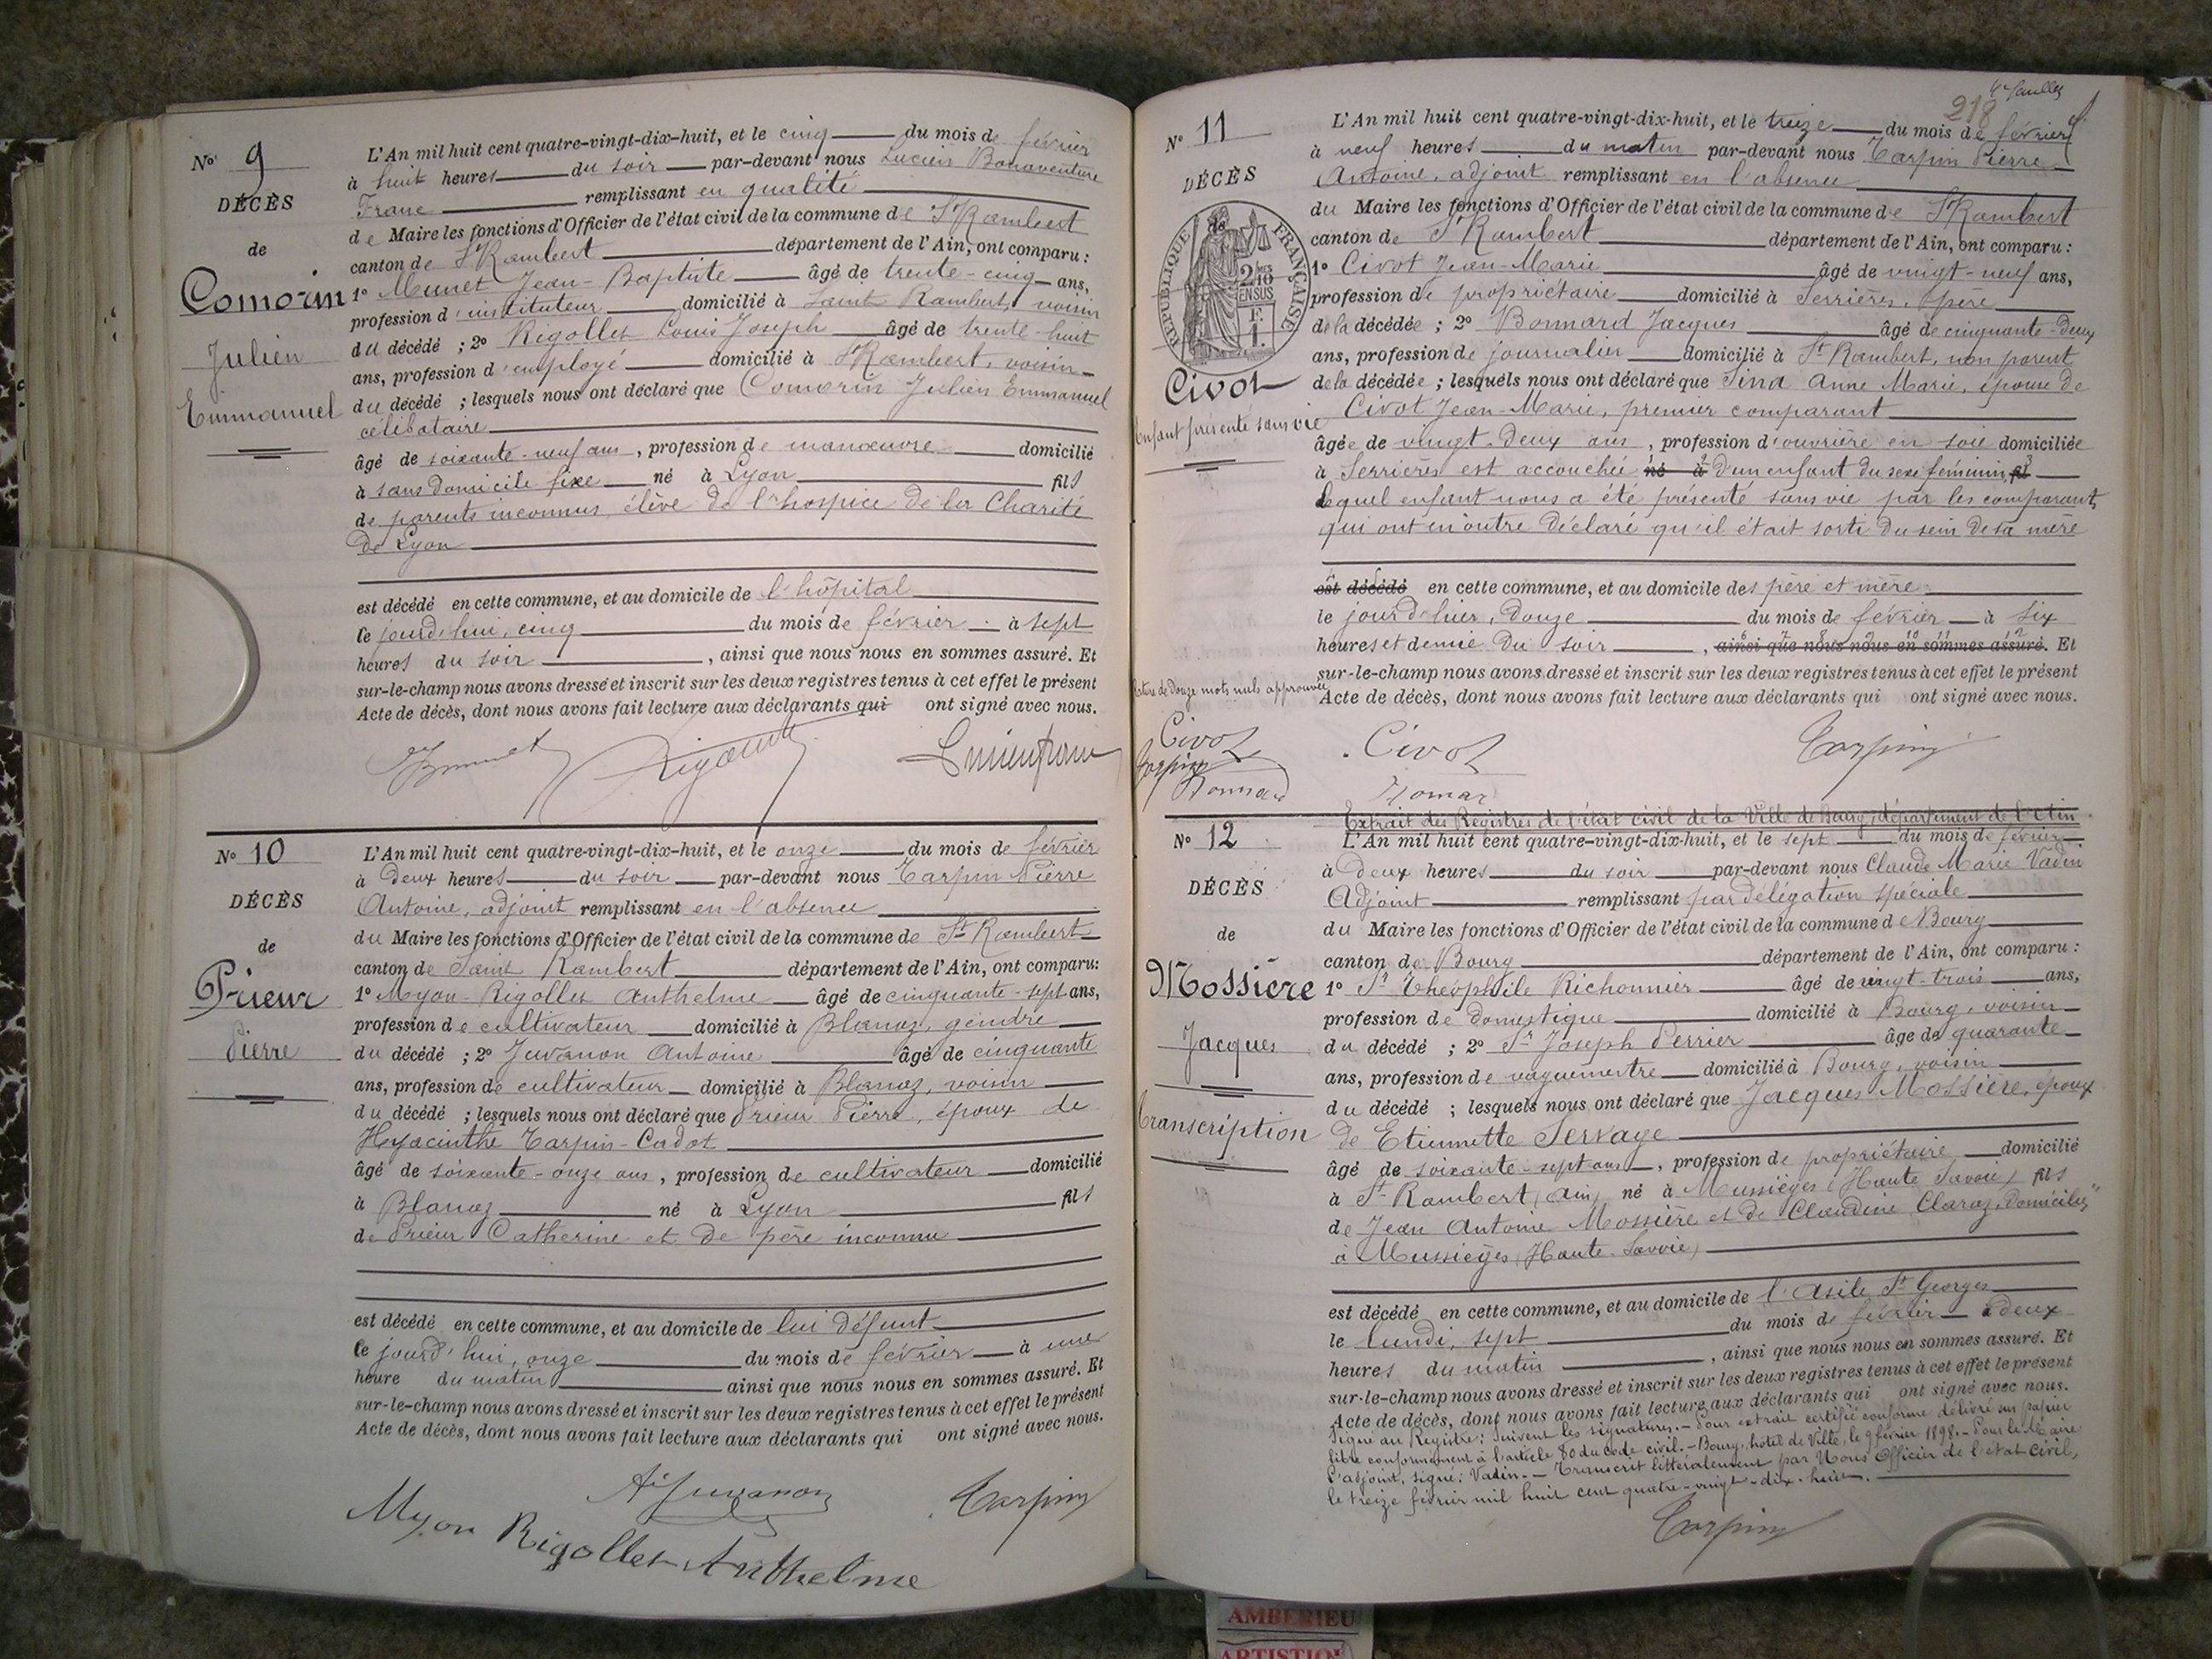 No 9
DÉCÈS
de
Comorin
Julien
Emmanuel
L'An mil huit cent quatre-vingt-dix-huit, et le cinq du mois de février
à huit heures du soir par-devant nous Lucien Bonaventure
Franc remplissant en qualité
de Maire les fonctions d'Officier de l'état civil de la commune de St Rambert
canton de St Rambert département de l'Ain, ont comparu :
1º Munet Jean-Baptiste âgé de trente-cinq ans,
profession d'instituteur domicilié à Saint Rambert, voisin
du décédé ; 2º Rigollet Louis Joseph âgé de trente-huit
ans, profession d'employé domicilié à St Rambert, voisin
du décédé ; lesquels nous ont déclaré que Comorin Julien Emmanuel
célibataire
âgé de soixante-neuf ans, profession de manœuvre domicilié
à sans domicile fixe né à Lyon fils
de parents inconnus, élève de l'hospice de la Charité
de Lyon
est décédé en cette commune, et au domicile de l'hôpital
le jourd'hui, cinq du mois de février à sept
heures du soir, ainsi que nous nous en sommes assuré. Et
sur-le-champ nous avons dressé et inscrit sur les deux registres tenus à cet effet le présent
Acte de décès, dont nous avons fait lecture aux déclarants qui ont signé avec nous.
No 10
DÉCÈS
de
Prieur
Pierre
L'An mil huit cent quatre-vingt-dix-huit, et le onze du mois de février
à deux heures du soir par-devant nous Tarpin Pierre
Antoine, adjoint remplissant en l'absence
du Maire les fonctions d'Officier de l'état civil de la commune de St Rambert
canton de Saint Rambert département de l'Ain, ont comparu:
1º Myon-Rigollet Anthelme âgé de cinquante-sept ans,
profession de cultivateur domicilié à Blanaz, gendre
du décédé ; 2º Juvanon Antoine âgé de cinquante
ans, profession de cultivateur domicilié à Blanaz, voisin
du décédé ; lesquels nous ont déclaré que Prieur Pierre, époux de
Hyacinthe Tarpin-Cadot
âgé de soixante-onze ans, profession de cultivateur domicilié
à Blanaz né à Lyon fils
de Prieur Catherine et de père inconnu
est décédé en cette commune, et au domicile de lui défunt
le jourd'hui, onze du mois de février à une
heure du matin ainsi que nous nous en sommes assuré. Et
sur-le-champ nous avons dressé et inscrit sur les deux registres tenus à cet effet le présent
Acte de décès, dont nous avons fait lecture aux déclarants qui ont signé avec nous.
A. Juvanon
Tarpin
Myon Rigollet Anthelme
218
No 11
DÉCÈS
de
RÉPUBLIQUE FRANÇAISE
2/10
EN SUS
Civot
Enfant présenté sans vie
L'An mil huit cent quatre-vingt-dix-huit, et le treize du mois de février
à neuf heures du matin par-devant nous Tarpin Pierre
Antoine, adjoint remplissant en l'absence
du Maire les fonctions d'Officier de l'état civil de la commune de St Rambert
canton de St Rambert département de l'Ain, ont comparu :
1º Civot Jean-Marie âgé de vingt-neuf ans,
profession de propriétaire domicilié à Serrières, père
de la décédée ; 2º Bonnard Jacques âgé de cinquante-deux
ans, profession de journalier domicilié à St Rambert, non parent
de la décédée ; lesquels nous ont déclaré que Sina Anne Marie, épouse de
Civot Jean-Marie, premier comparant
âgée de vingt-deux ans, profession d'ouvrière en soie domiciliée
à Serrières est accouchée né à d'un enfant du sexe féminin, fil
lequel enfant nous a été présenté sans vie par les comparants
qui ont en outre déclaré qu'il était sorti du sein de sa mère
est décédé en cette commune, et au domicile des père et mère
le jour d'hier, douze du mois de février à six
heures et demie du soir, ainsi que nous nous en sommes assuré. Et
sur-le-champ nous avons dressé et inscrit sur les deux registres tenus à cet effet le présent
Acte de décès, dont nous avons fait lecture aux déclarants qui ont signé avec nous.
de douze mots nuls approuvée
Civot
Tarpin
Bonnard
Civot
Tarpin
Extrait des Registres de l'état civil de la Ville de Bourg, département de l'Ain
No 12
DÉCÈS
de
Mossière
Jacques
Transcription
L'An mil huit cent quatre-vingt-dix-huit, et le sept du mois de février
à deux heures du soir par-devant nous Claude Marie Vadin
Adjoint remplissant par délégation spéciale
du Maire les fonctions d'Officier de l'état civil de la commune de Bourg
canton de Bourg département de l'Ain, ont comparu :
1º Sr Théophile Richonnier âgé de vingt-trois ans,
profession de domestique domicilié à Bourg, voisin
du décédé ; 2º Sr Joseph Perrier âgé de quarante
ans, profession de vaguemestre domicilié à Bourg, voisin
du décédé ; lesquels nous ont déclaré que Jacques Mossière, époux
de Etiennette Servage
âgé de soixante-sept ans, profession de propriétaire domicilié
à St Rambert (Ain) né à Mussièges (Haute Savoie) fils
de Jean Antoine Mossière et de Claudine Claraz, domiciliés
à Mussièges (Haute-Savoie)
est décédé en cette commune, et au domicile de l'Asile St Georges
le lundi, sept du mois de février à deux
heures du matin, ainsi que nous nous en sommes assuré. Et
sur-le-champ nous avons dressé et inscrit sur les deux registres tenus à cet effet le présent
Acte de décès, dont nous avons fait lecture aux déclarants qui ont signé avec nous.
Signé au Registre: Suivent les signatures.- Pour extrait certifié conforme délivré sur papier
libre conformément à l'article 80 du code civil.- Bourg, hôtel de Ville, le 9 février 1898.- Pour le Maire
L'adjoint, signé: Vadin.- Transcrit littéralement par Nous Officier de l'état civil,
le treize février mil huit cent quatre-vingt-dix-huit.
Tarpin
AMBERIEU